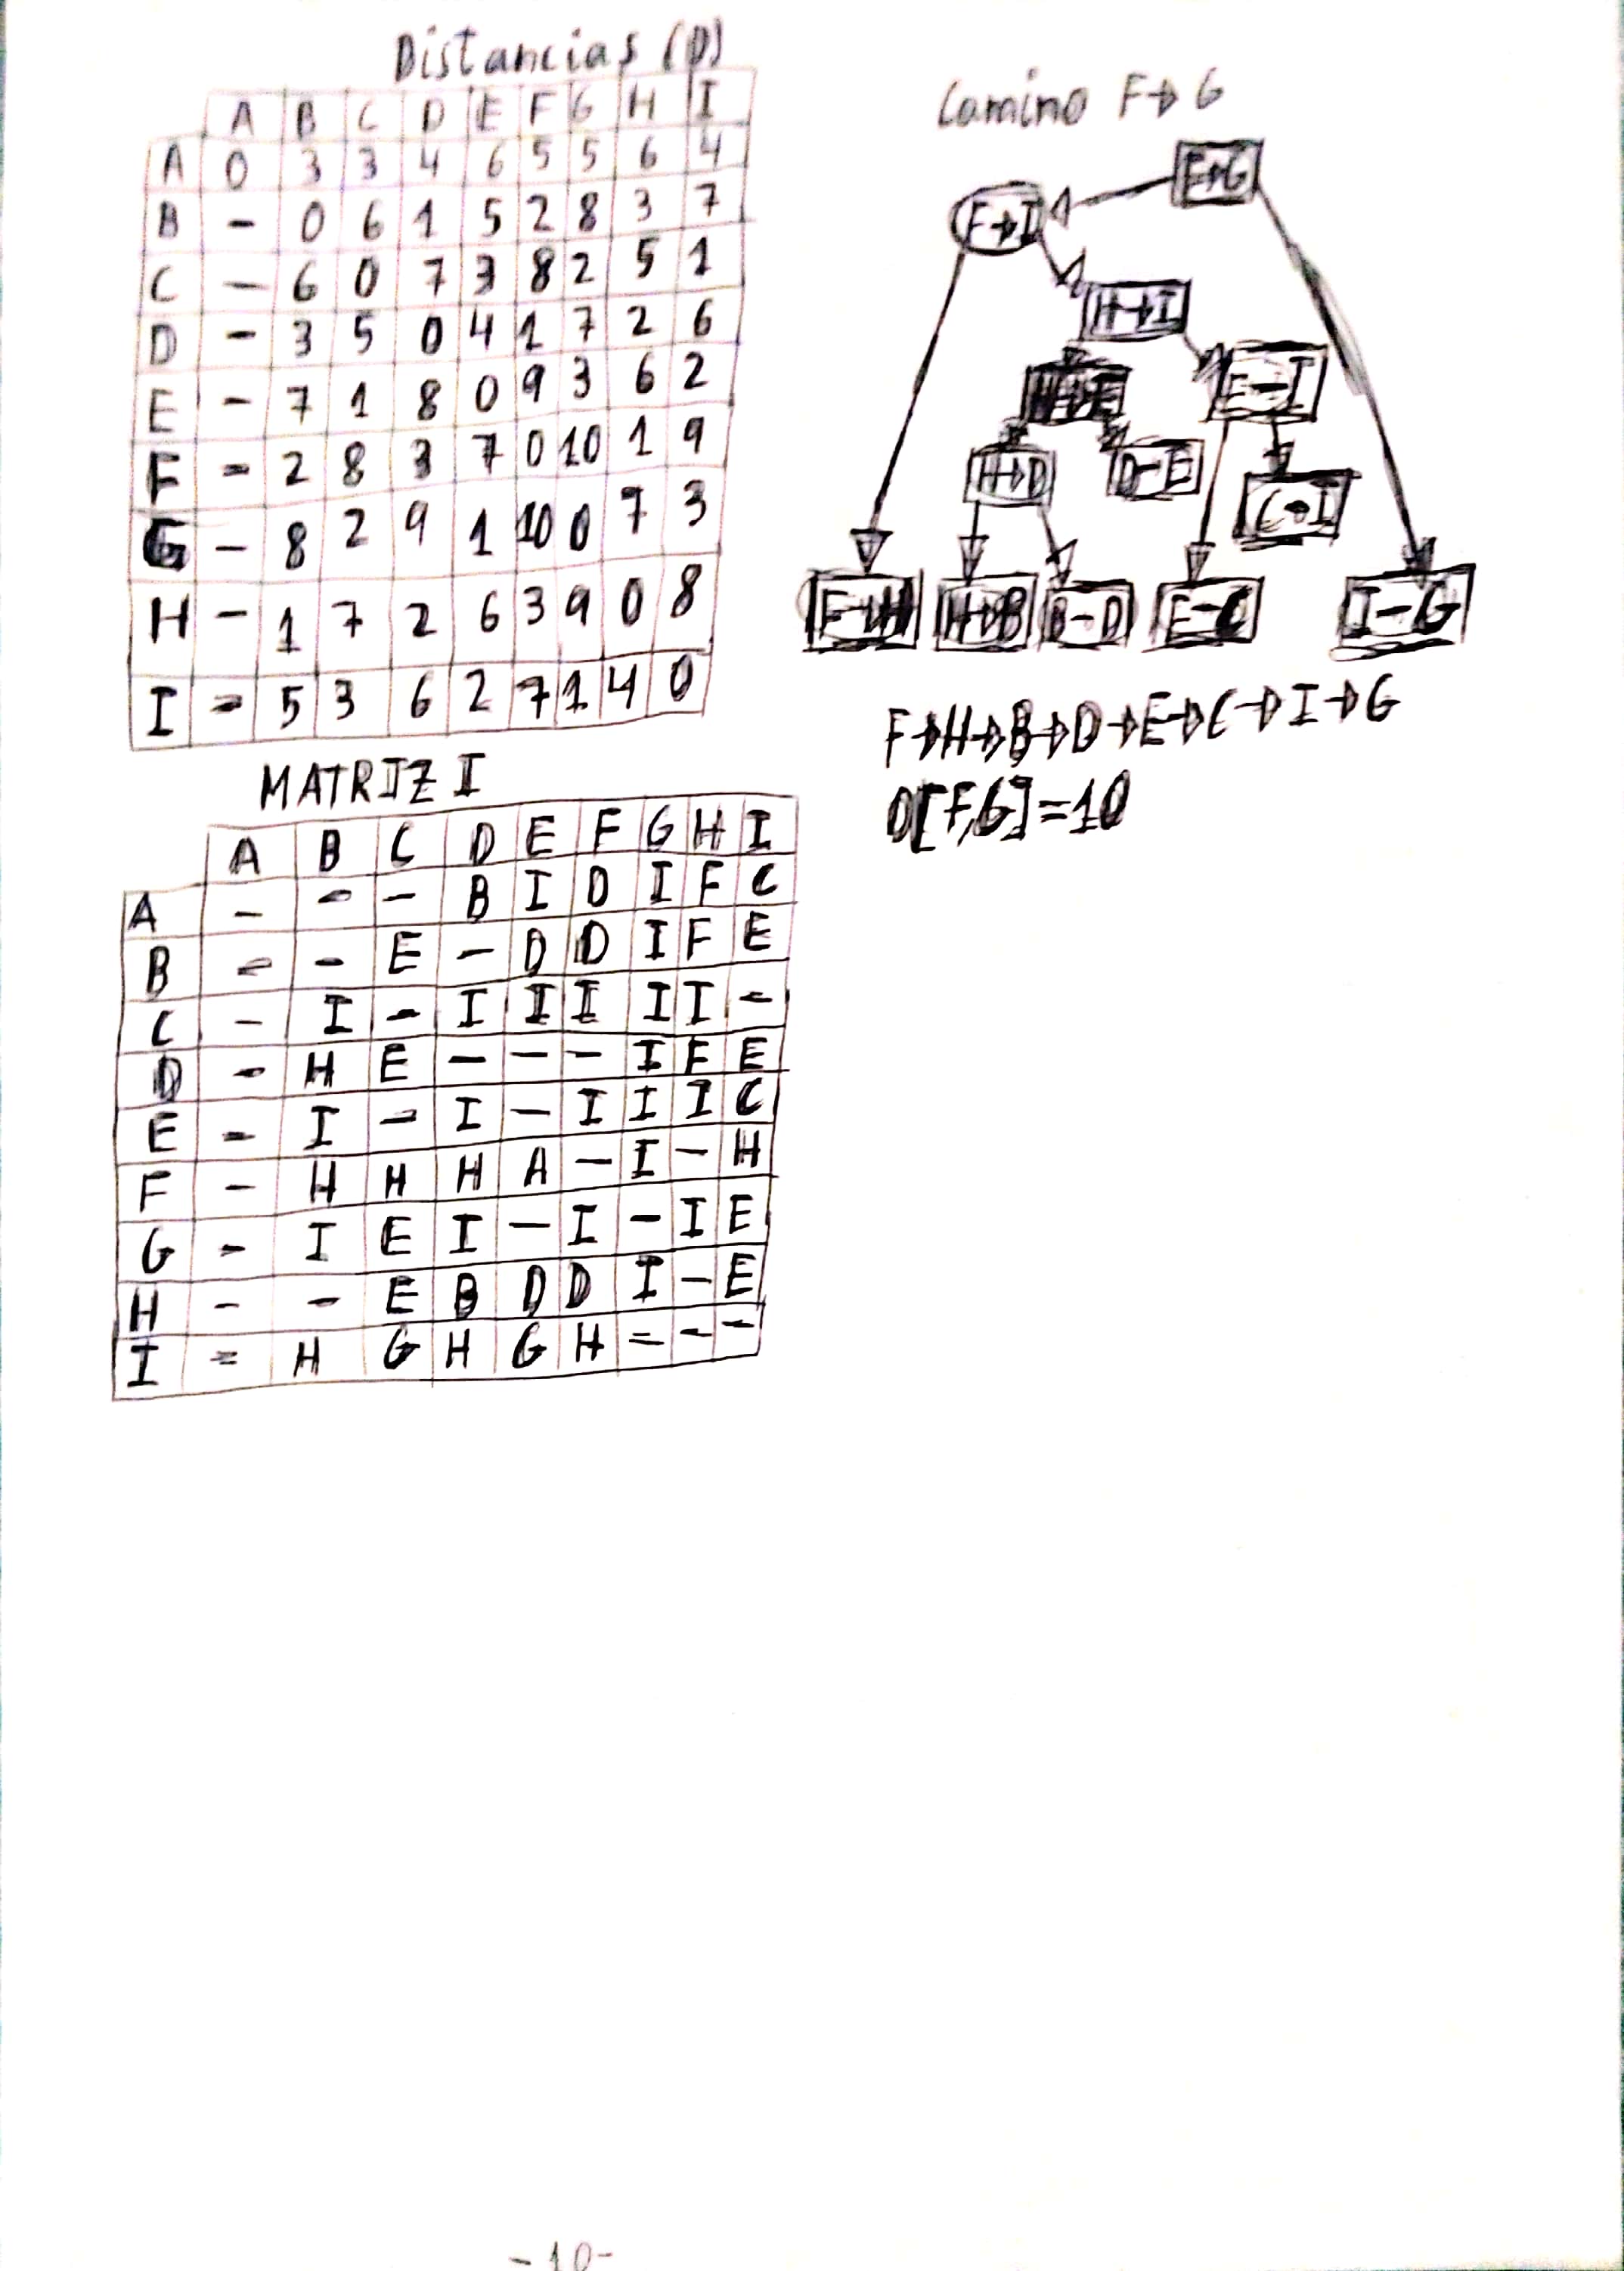 Distancias (D)
A B C D E F G H I
A 0 3 3 4 6 5 5 6 4
B - 0 6 1 5 2 8 3 7
C - 6 0 7 3 8 2 5 1
D - 3 5 0 4 1 7 2 6
E - 7 1 8 0 9 3 6 2
F - 2 8 3 7 0 10 1 9
G - 8 2 9 1 10 0 7 3
H - 1 7 2 6 3 9 0 8
I - 5 3 6 2 7 1 4 0
MATRIZ I
A B C D E F G H I
A - - - B I D I F C
B - - E - D D I F E
C - I - I I I I I -
D - H E - - - I F E
E - I - I - I I I C
F - H H H A - I - H
G - I E I - I - I E
H - - E B D D I - E
I - H G H G H - - -
Camino F→G
F→G
F→I
H→I
H→E E-I
H→D D-E C→I
F→H H→B B-D E-C I-G
F→H→B→D→E→C→I→G
D[F,G]=10
-10-